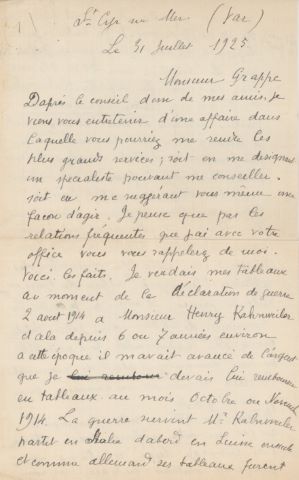 St Cyr sur Mer (Var)
Le 31 Juillet 1925.
Monsieur Grappe
Daprès le conseil d'un de mes amis, je
viens vous entretenir d'une affaire dans
laquelle vous pourriez me rendre les
plus grands services; soit en me designant
un specialiste pouvant me conseiller.
soit en me suggérant vous même une
façon d'agir. Je pense que par les
relations fréquentes que j'ai avec votre
office vous vous rappelerez de moi.
Voici les faits. Je vendais mes tableaux
au moment de la déclaration de guerre
2 aout 1914 a Monsieur Henry Kahnweiler
et ala depuis 6 ou 7 années environ
a cette époque il m'avait avancé de l'argent
que je lui devais lui rembourser
en tableaux. au mois Octobre ou Novemb
1914. La guerre survint Mr Kahnweiler
partit en Italie d'abord en Suisse ensuite
et comme allemand ses tableaux furent